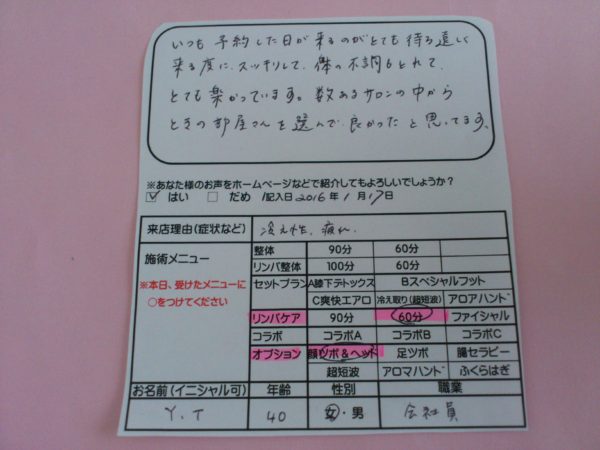 いつも予約した日が来るのがとても待ち遠しく
来る度に、スッキリして、体の不調もとれて、
とても楽かっています。数あるサロンの中から
ときの部屋さんを選んで良かったと思ってます。
※あなた様のお声をホームページなどで紹介してもよろしいでしょうか？
はい だめ /記入日2016年1月17日
来店理由(症状など) 冷え性、疲れ
施術メニュー 整体 90分 60分
リンパ整体 100分 60分
※本日、受けたメニューに セットプラン A膝下デトックス Bスペシャルフット
○をつけてください C爽快エアロ 冷え取り(超短波) アロアハンド
リンパケア 90分 60分 フェイシャル
コラボ コラボA コラボB コラボC
オプション 顔ツボ&ヘッド 足ツボ 腸セラピー
超短波 アロマハンド ふくらはぎ
お名前(イニシャル可) 年齢 性別 職業
Y.T 40 女・男 会社員